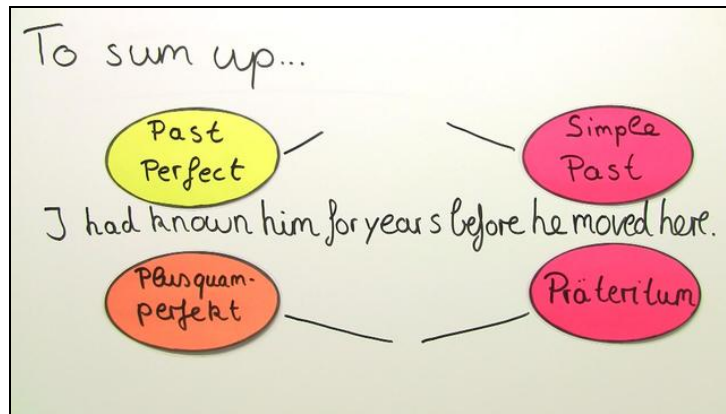 To sum up...
Past
Perfect
Simple
Past
I had known him for years before he moved here.
Plusquam-
perfekt
Präteritum